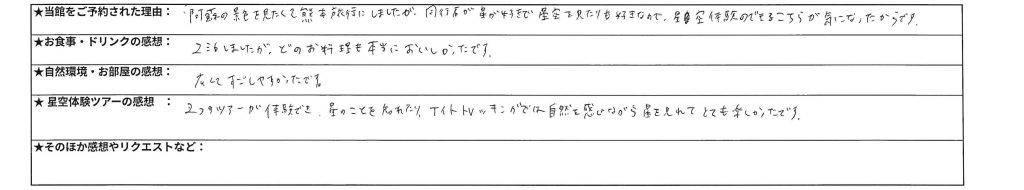 ★当館をご予約された理由： 阿蘇の景色を見たくて熊本旅行にしましたが、同行者が星が好きで星空を見たりも好きなので、星空体験のできるこちらが気になったからです。
★お食事・ドリンクの感想： 2泊しましたが、どのお料理も本当においしかったです。
★自然環境・お部屋の感想： 広くてすごしやすかったです。
★ 星空体験ツアーの感想 ： 2つのツアーが体験でき、星のことを知れたり、ナイトトレッキングでは自然を感じながら星を見れてとても楽しかったです。
★そのほか感想やリクエストなど：